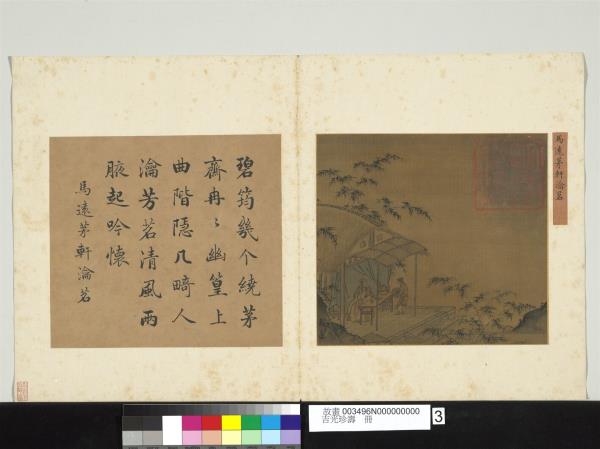 碧筠幾个繞茅
齋冉〻幽篁上
曲階隠几畸人
瀹芳茗清風兩
腋起吟懐
馬遠茅軒瀹茗
馬遠茅軒瀹茗
故畫 003496N000000000
吉光珍壽 冊
3